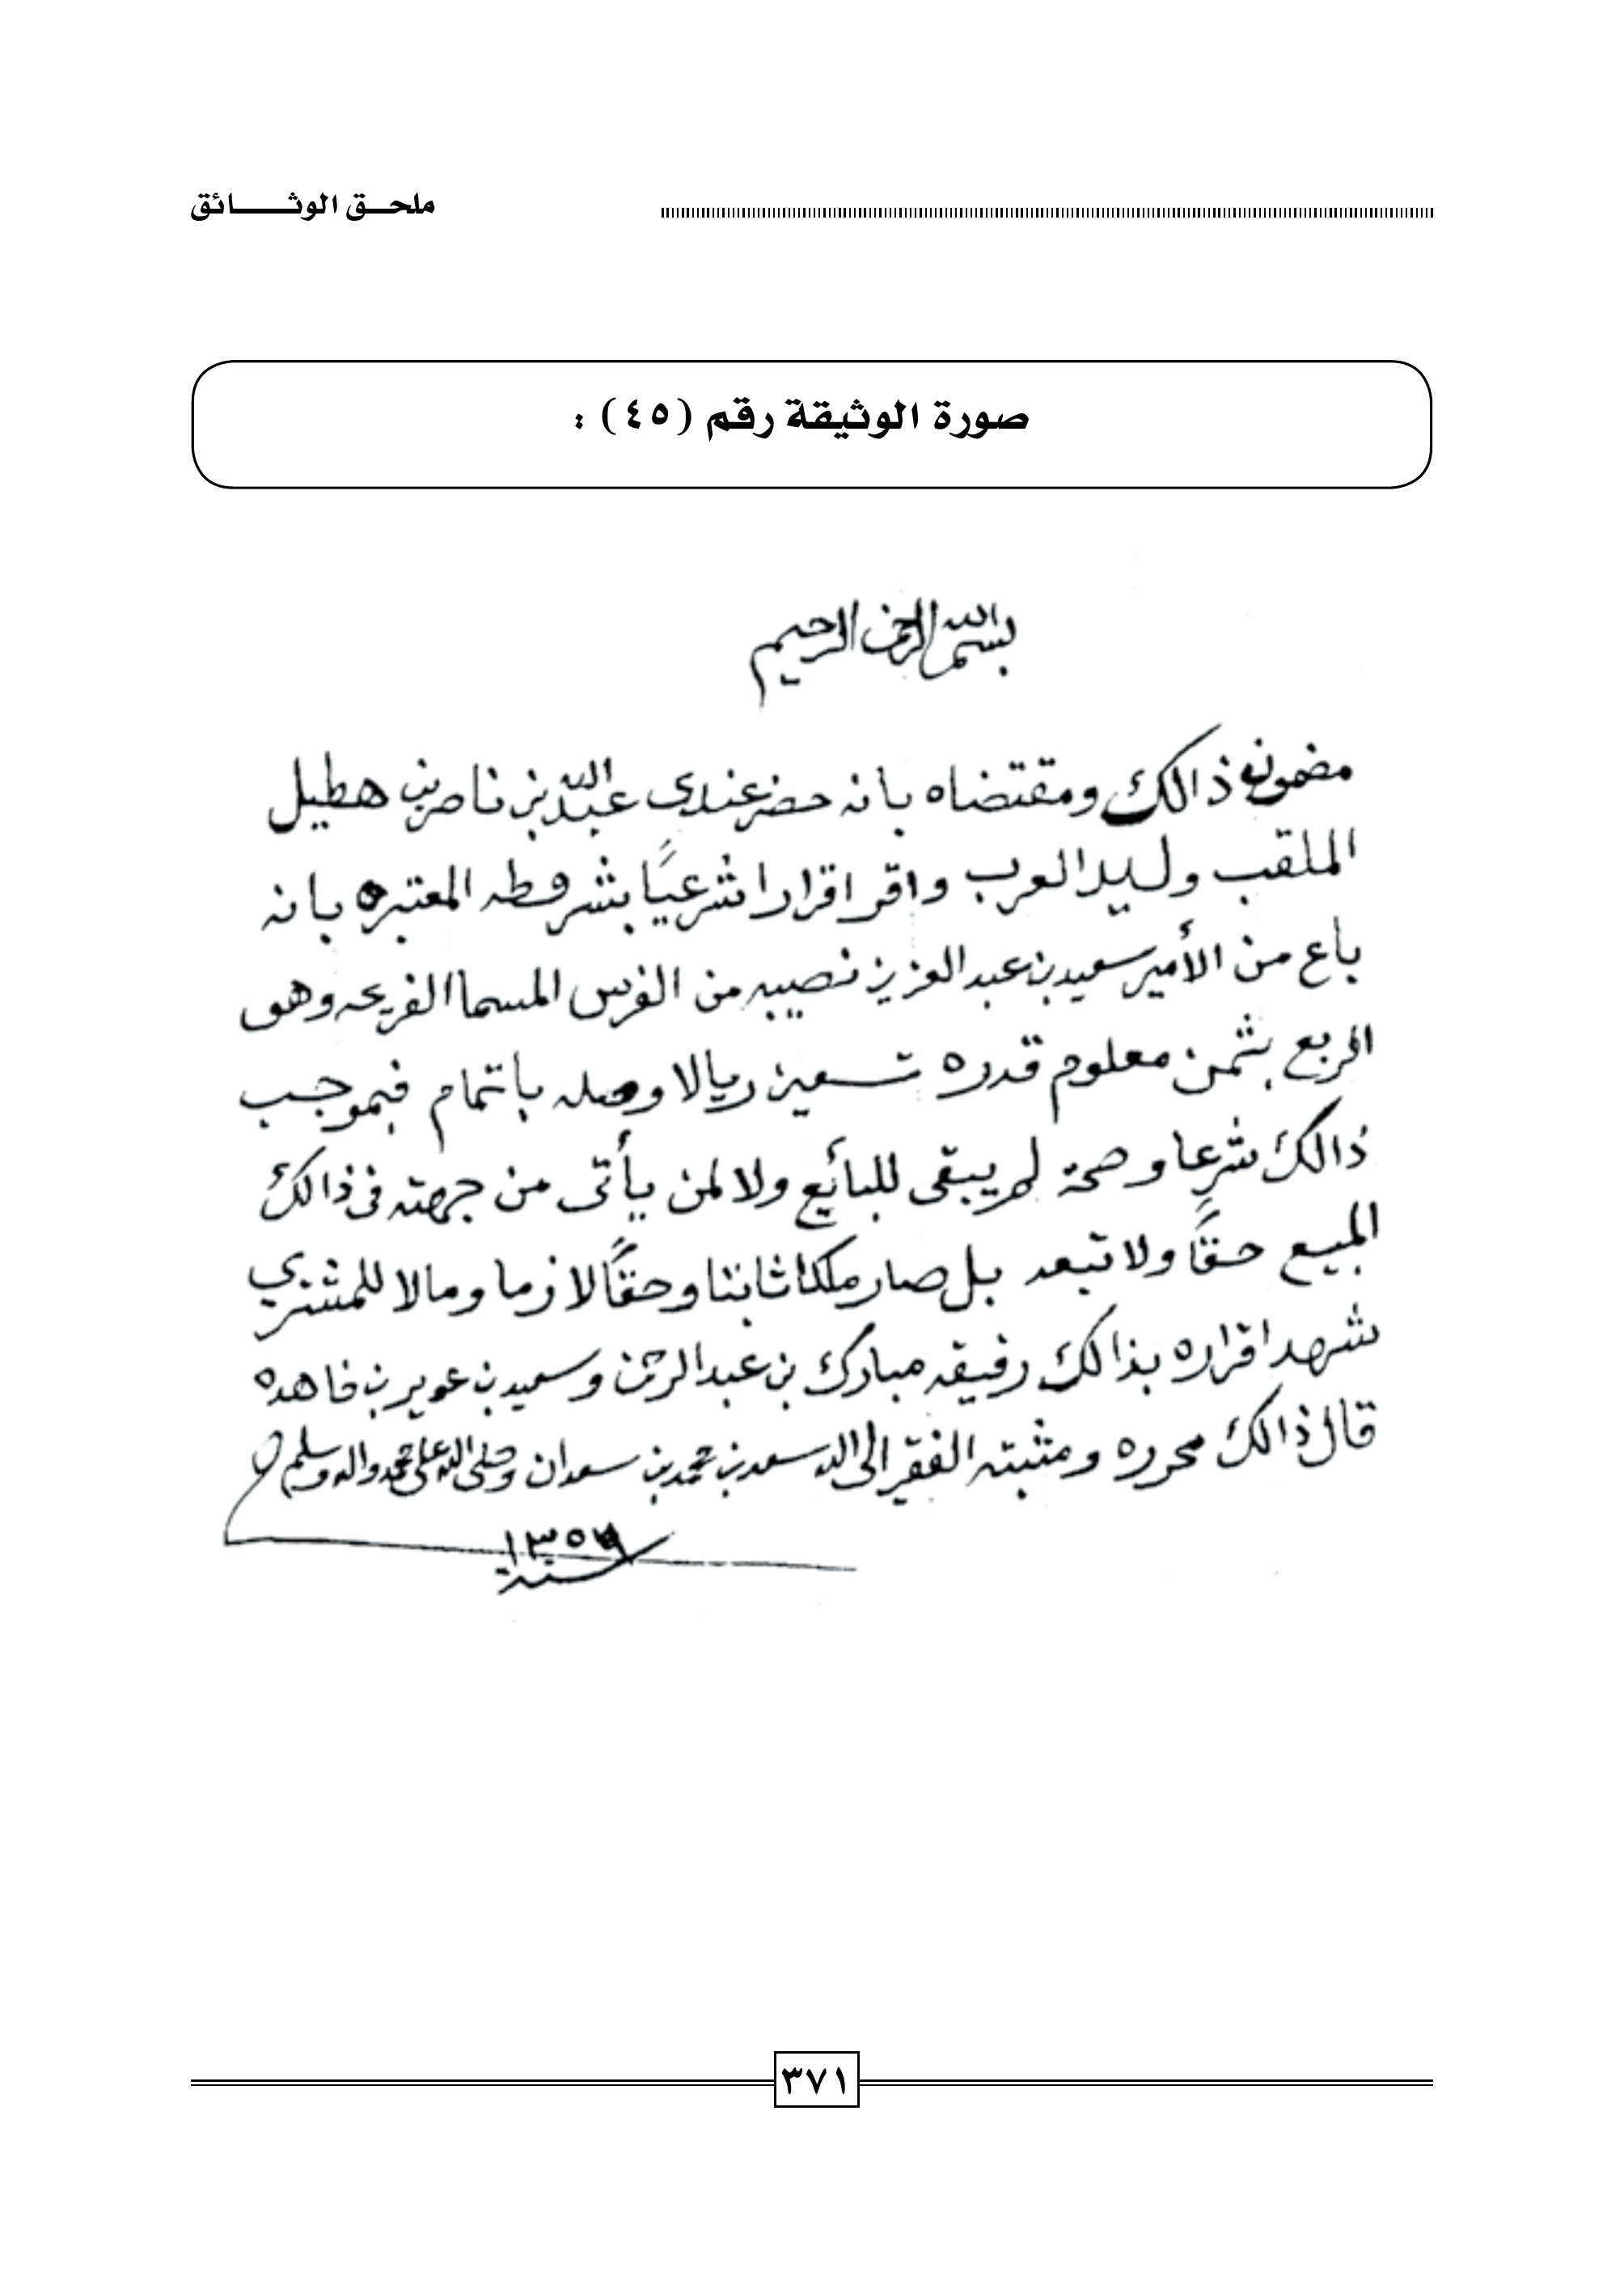 ملحق الوثائق
صورة الوثيقة رقم (٤٥) :
بسم الله الرحمن الرحيم
مضمون ذالك ومقتضاه بانه حضر عندي عبدالله بن ناصر بن هطيل
الملقب وليد العرب واقر اقرارا شرعيًا بشروطه المعتبره بانه
باع من الأمير سعيد بن عبد العزيز نصيبه من الفرس المسما الفريحه وهو
الربع بثمن معلوم قدره تسعين ريالا وصله باتمام فبموجب
ذالك شرعا وصحة لم يبقى للبائع ولا لمن يأتى من جهته فى ذالك
المبيع حقًا ولا تبعد بل صار ملكا ثابتا وحقًا لازما ومالا للمشتري
شهد اقراره بذالك رفيقه مبارك بن عبد الرحمن وسعيد بن عوير بن
قال ذالك محرره ومثبته الفقير الى الله سعد بن محمد بن سعدان وصلى الله على محمد واله وسلم
سنة
٣٧١